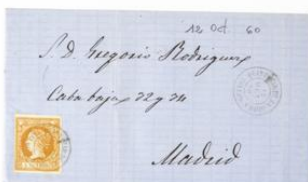 12 Oct. 60
S. D. Gregorio Rodriguez
Caba baja 32 y 34
Madrid